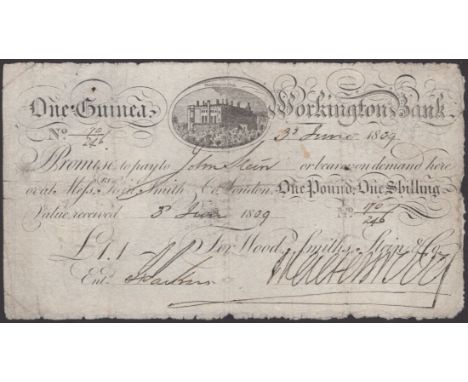 One Guinea. Workington Bank.
No 70/246 3d June 1809
Promise to pay to John Stein or bearer on demand here
or at Messrs Smith & Co London. One Pounds One Shilling
Value received 3d June 1809 No 70/246
£1.1 For Wood, Smiths, Stein & Co.
Entd